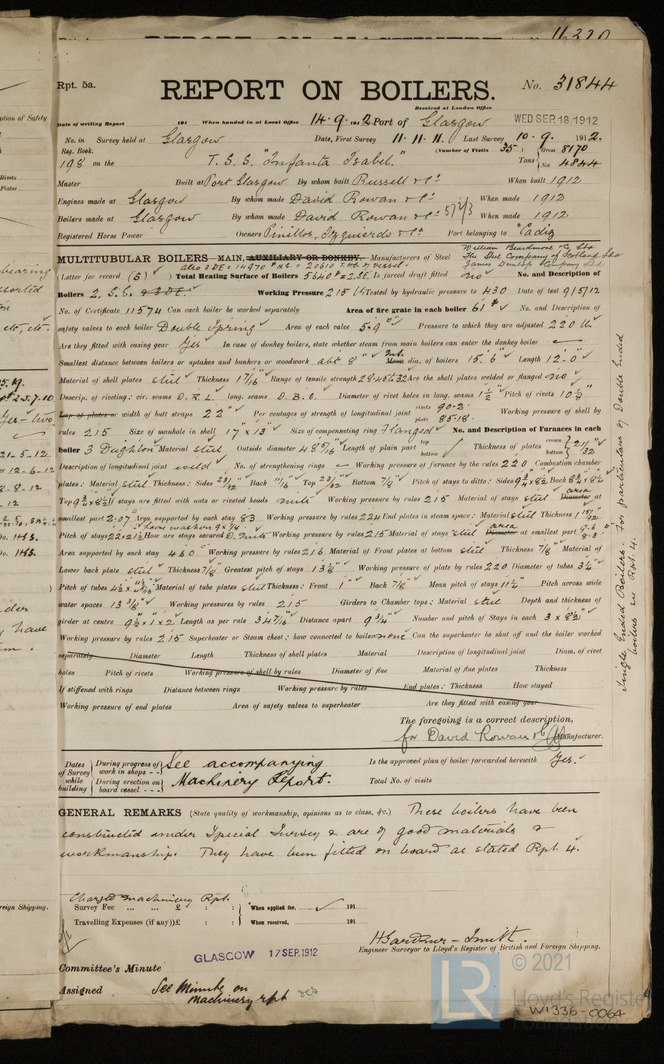 Rpt. 5a.
REPORT ON BOILERS.
No. 31844
Received at London Office
WED. SEP. 18. 1912
Date of writing Report 191 When handed in at Local Office 14.9.1912 Port of Glasgow
No. in Survey held at Glasgow Date, First Survey 11.11.11. Last Survey 10.9.1912.
Reg. Book. (Number of Visits 35) Gross 8170
198 on the T.S.S. "Infanta Isabel" Tons Net 4844
Master Built at Port Glasgow By whom built Russell & Co. When built 1912
Engines made at Glasgow By whom made David Rowan & Co. When made 1912
Boilers made at Glasgow By whom made David Rowan & Co. When made 1912
Registered Horse Power Owners Pinillos, Izquierdo & Co. Port belonging to Cadiz
MULTITUBULAR BOILERS – MAIN, AUXILIARY OR DONKEY. – Manufacturers of Steel William Beardmore & Co Ltd
The Steel Company of Scotland Ltd
(Letter for record (S)) Total Heating Surface of Boilers 5640 = 2 S.E. Is forced draft fitted no No. and Description of
Boilers 2. S.E. Working Pressure 215 lb Tested by hydraulic pressure to 430 Date of test 9/5/12
No. of Certificate 11574 Can each boiler be worked separately Area of fire grate in each boiler 61 No. and Description of
safety valves to each boiler Double Spring Area of each valve 5.9 Pressure to which they are adjusted 220 lb
Are they fitted with easing gear Yes In case of donkey boilers, state whether steam from main boilers can enter the donkey boiler
Smallest distance between boilers or uptakes and bunkers or woodwork abt 8" Int. Mean dia. of boilers 15'.6" Length 12'.0"
Material of shell plates steel Thickness 1 7/16 Range of tensile strength Are the shell plates welded or flanged no
Descrip. of riveting: cir. seams D.R.L. long. seams D.B.S. Diameter of rivet holes in long. seams 1 1/2 Pitch of rivets 10 1/2"
Lap of plates or width of butt straps 22" Per centages of strength of longitudinal joint rivets 90.2 plate 85.18 Working pressure of shell by
rules 215 Size of manhole in shell 17" x 13" Size of compensating ring Flanged No. and Description of Furnaces in each
boiler 3 Deighton Material steel Outside diameter 48 5/16 Length of plain part top bottom Thickness of plates crown bottom 21/32
Description of longitudinal joint weld No. of strengthening rings Working pressure of furnace by the rules 220 Combustion chamber
plates: Material steel Thickness: Sides 23/32 Back 11/16 Top 23/32 Bottom 7/8 Pitch of stays to ditto: Sides Back
Top If stays are fitted with nuts or riveted heads nuts Working pressure by rules 215 Material of stays steel area Diameter at
smallest part 2.07 Area supported by each stay 83 Working pressure by rules 224 End plates in steam space: Material steel Thickness
Pitch of stays How are stays secured D. nuts Working pressure by rules 215 Material of stays steel area Diameter at smallest part
Area supported by each stay 460 Working pressure by rules 216 Material of Front plates at bottom steel Thickness 7/8 Material of
Lower back plate steel Thickness 7/8 Greatest pitch of stays 13 3/8 Working pressure of plate by rules 220 Diameter of tubes 3 1/4
Pitch of tubes Material of tube plates steel Thickness: Front 1 Back 7/8 Mean pitch of stays 11 1/4 Pitch across wide
water spaces 13 3/8 Working pressures by rules 215 Girders to Chamber tops: Material steel Depth and thickness of
girder at centre 9 1/2 x 1 x 2 Length as per rule 34 7/16 Distance apart 9 1/4 Number and pitch of Stays in each 3 x 8 1/2
Working pressure by rules 215 Superheater or Steam chest; how connected to boiler none Can the superheater be shut off and the boiler worked
separately Diameter Length Thickness of shell plates Material Description of longitudinal joint Diam. of rivet
holes Pitch of rivets Working pressure of shell by rules Diameter of flue Material of flue plates Thickness
If stiffened with rings Distance between rings Working pressure by rules End plates: Thickness How stayed
Working pressure of end plates Area of safety valves to superheater Are they fitted with easing gear
Single Ended Boilers. For particulars of Double Ended boilers see Rpt. 4.
The foregoing is a correct description,
for David Rowan & Co Manufacturer.
Dates of Survey while building During progress of work in shops - - During erection on board vessel - - -
See accompanying Machinery Report.
Is the approved plan of boiler forwarded herewith Yes.
Total No. of visits
GENERAL REMARKS (State quality of workmanship, opinions as to class, &c.) These boilers have been
constructed under Special Survey & are of good materials &
workmanship. They have been fitted on board as stated Rpt. 4.
Charged Machinery Rpt.
Survey Fee ... ... £ : : When applied for, 191
Travelling Expenses (if any) £ : : When received, 191
H Gardner-Smith.
Engineer Surveyor to Lloyd's Register of British and Foreign Shipping.
GLASGOW 17 SEP. 1912
Committee's Minute
Assigned See Minute on
Machinery rpt
© 2021
Lloyd's Register
Foundation
W1336-0064